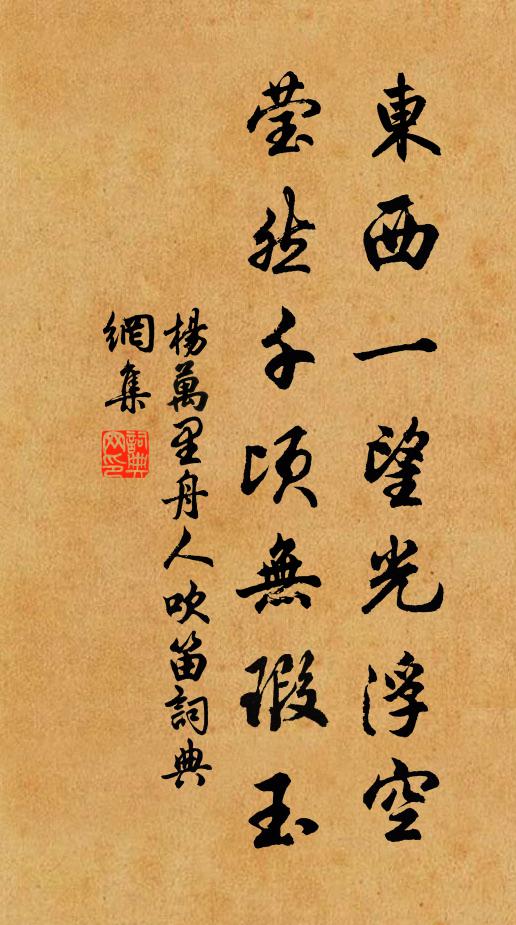 東西一望光浮空
莹然千頃無瑕玉
楊萬里舟人吹笛詞典
網集
詞典網印